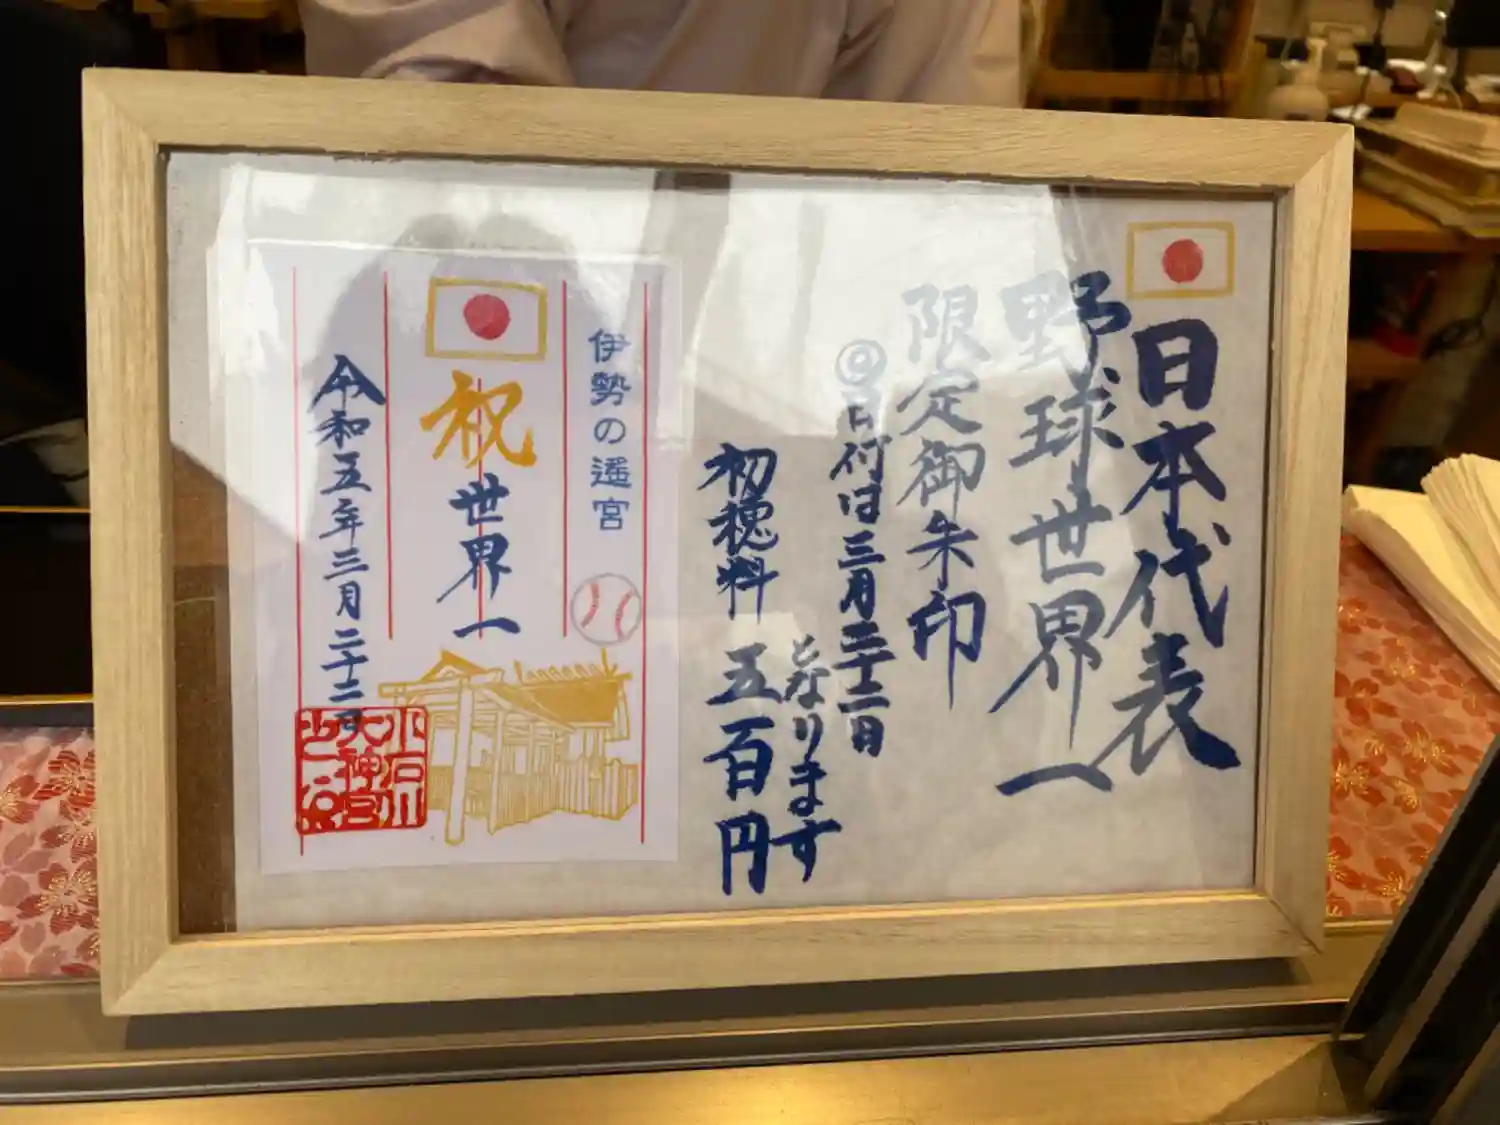 日本代表
野球世界一
限定御朱印
◎日付は三月二十二日
となります
初穂料 五百円
伊勢の遥宮
祝 世界一
令和五年三月二十二日
小戸
大神宮